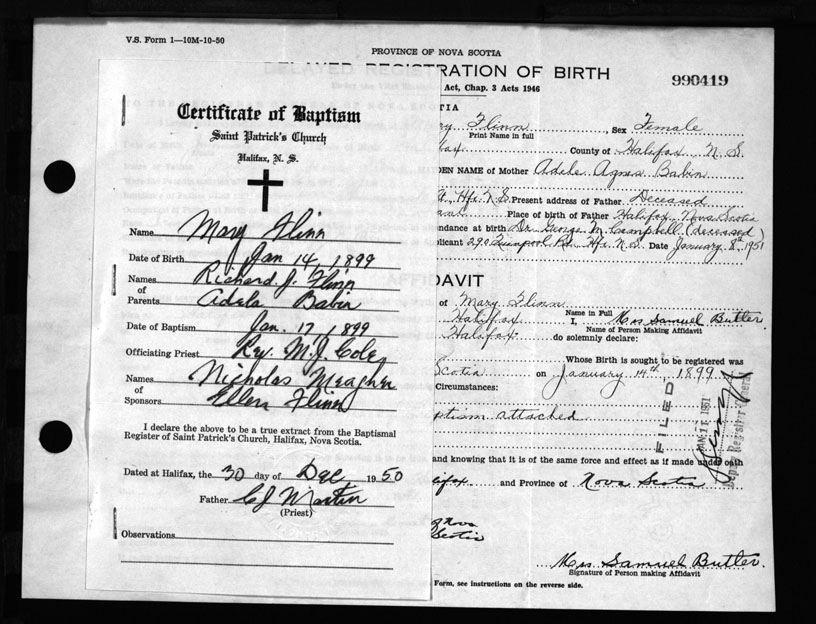 V.S. Form 1—10M-10-50
PROVINCE OF NOVA SCOTIA
DELAYED REGISTRATION OF BIRTH
990419
Act, Chap. 3 Acts 1946
Certificate of Baptism
Saint Patrick's Church
Halifax, N. S.
Name Mary Flinn
Date of Birth Jan 14, 1899
Names of Parents Richard J. Flinn
Adela Babin
Date of Baptism Jan. 17, 1899
Officiating Priest Rev. M. J. Cole
Names of Sponsors Nicholas Meagher
Ellen Flinn
I declare the above to be a true extract from the Baptismal
Register of Saint Patrick's Church, Halifax, Nova Scotia.
Dated at Halifax, the 30 day of Dec 1950
Father C J Martin
(Priest)
Observations
TIA
ry Flinn, Sex Female
Print Name in full
fax County of Halifax N. S.
DEN NAME of Mother Adele Agnes Babin
Hfx. N.S. Present address of Father Deceased
Place of Birth of Father Halifax, Nova Scotia
endance at birth Dr. George M. Campbell (deceased)
plicant 290 Quinpool Rd. Hfx. N.S. Date January 8th 1951
DAVIT
of Mary Flinn
Name in Full
Halifax I, Mrs Samuel Butler
Name of Person Making Affidavit
Halifax do solemnly declare:
Whose Birth is sought to be registered was
Scotia on January 14th, 1899
Circumstances:
ptism attached
FILED
JAN 11 1951
Deputy Registrar General
and knowing that it is of the same force and effect as if made under oath
lifax and Province of Nova Scotia
Nova
Scotia
Mrs. Samuel Butler.
Signature of Person making Affidavit
Form, see instructions on the reverse side.